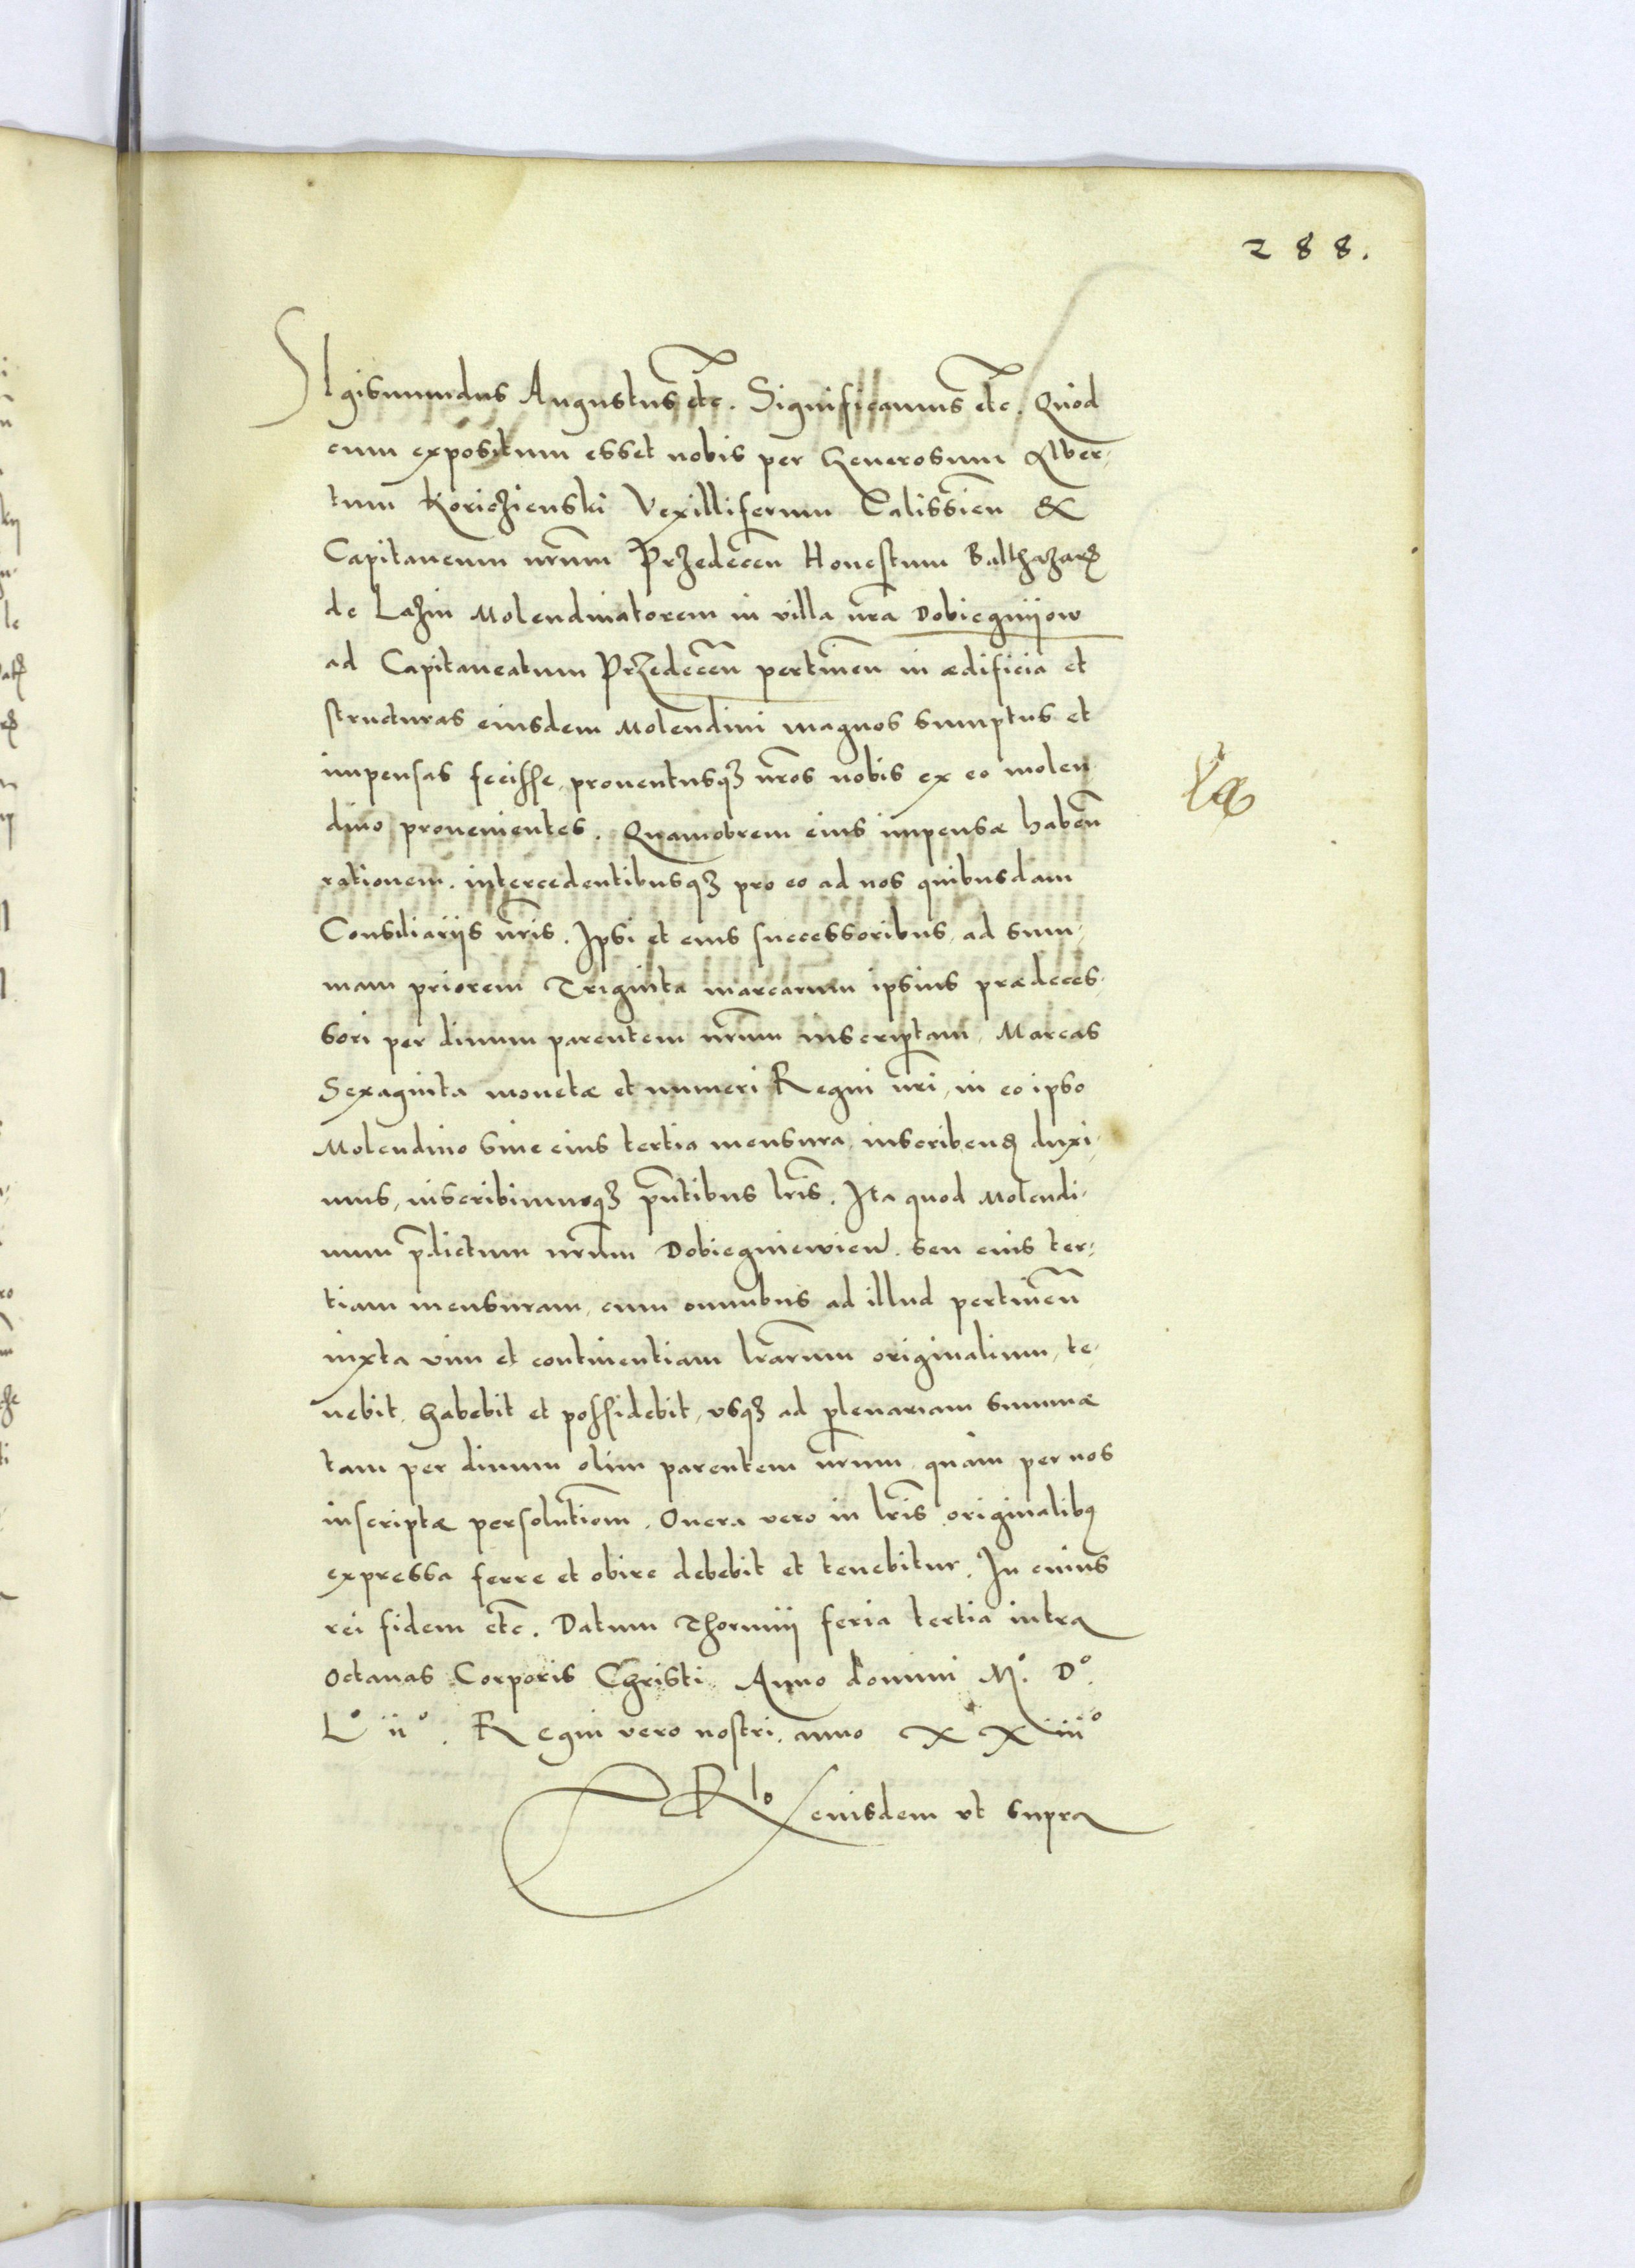 288.
SIgismundus Augustus etc. Significamus etc. Quod
cum expositum esset nobis per Generosum Alber-
tum Koriczienski Vexilliferum Calissien̄ &
Capitaneum nr̄um Przedecen̄ Honestum Balthazarꝫ
de Lazin Molendinatorem in villa nr̄a Dobiegniijow
ad Capitaneatum Przedecen̄ pertinen̄ in ædificia et
structuras eiusdem Molendini magnos sumptus et
impensas fecisse, prouentusqꝫ nr̄os nobis ex eo molen
dino prouenientes. Quamobrem eius impensæ haben̄
rationem. intercedentibusqꝫ pro eo ad nos quibusdam
Consiliariis nr̄is. Ipsi et eius successoribus, ad sum-
mam priorem Triginta marcarum ipsius prædeces-
sori per diuum parentem nr̄um inscriptam, Marcas
Sexaginta monetæ et numeri Regni nr̄i, in eo ipso
Molendino siue eius tertia mensura, inscribenꝫ duxi-
mus, inscribimusqꝫ pn̄tibus lr̄is. Ita quod Molendi-
num p̄dictum nr̄um Dobiegniewien̄. seu eius ter-
tiam mensuram, cum omnibus ad illud pertinen̄
iuxta vim et continentiam lr̄arum originalium, te-
nebit, habebit et possidebit, vsqꝫ ad plenariam summæ
tam per diuum olim parentem nr̄um, quàm per nos
inscriptæ persolutiom̄. Onera vero in lr̄is originalibꝫ
expressa ferre et obire debebit et tenebitur. In cuius
rei fidem etc. Datum Thorunij feria tertia intra
octauas Corporis Christi. Anno domini M.º D.º
L.º ii.º Regni vero nostri, anno XXiii.º
Rlo eiusdem vt supra